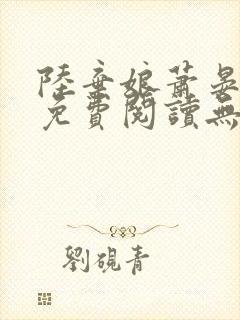 陸棄娘蕭晏
免費閱讀無
劉硯青